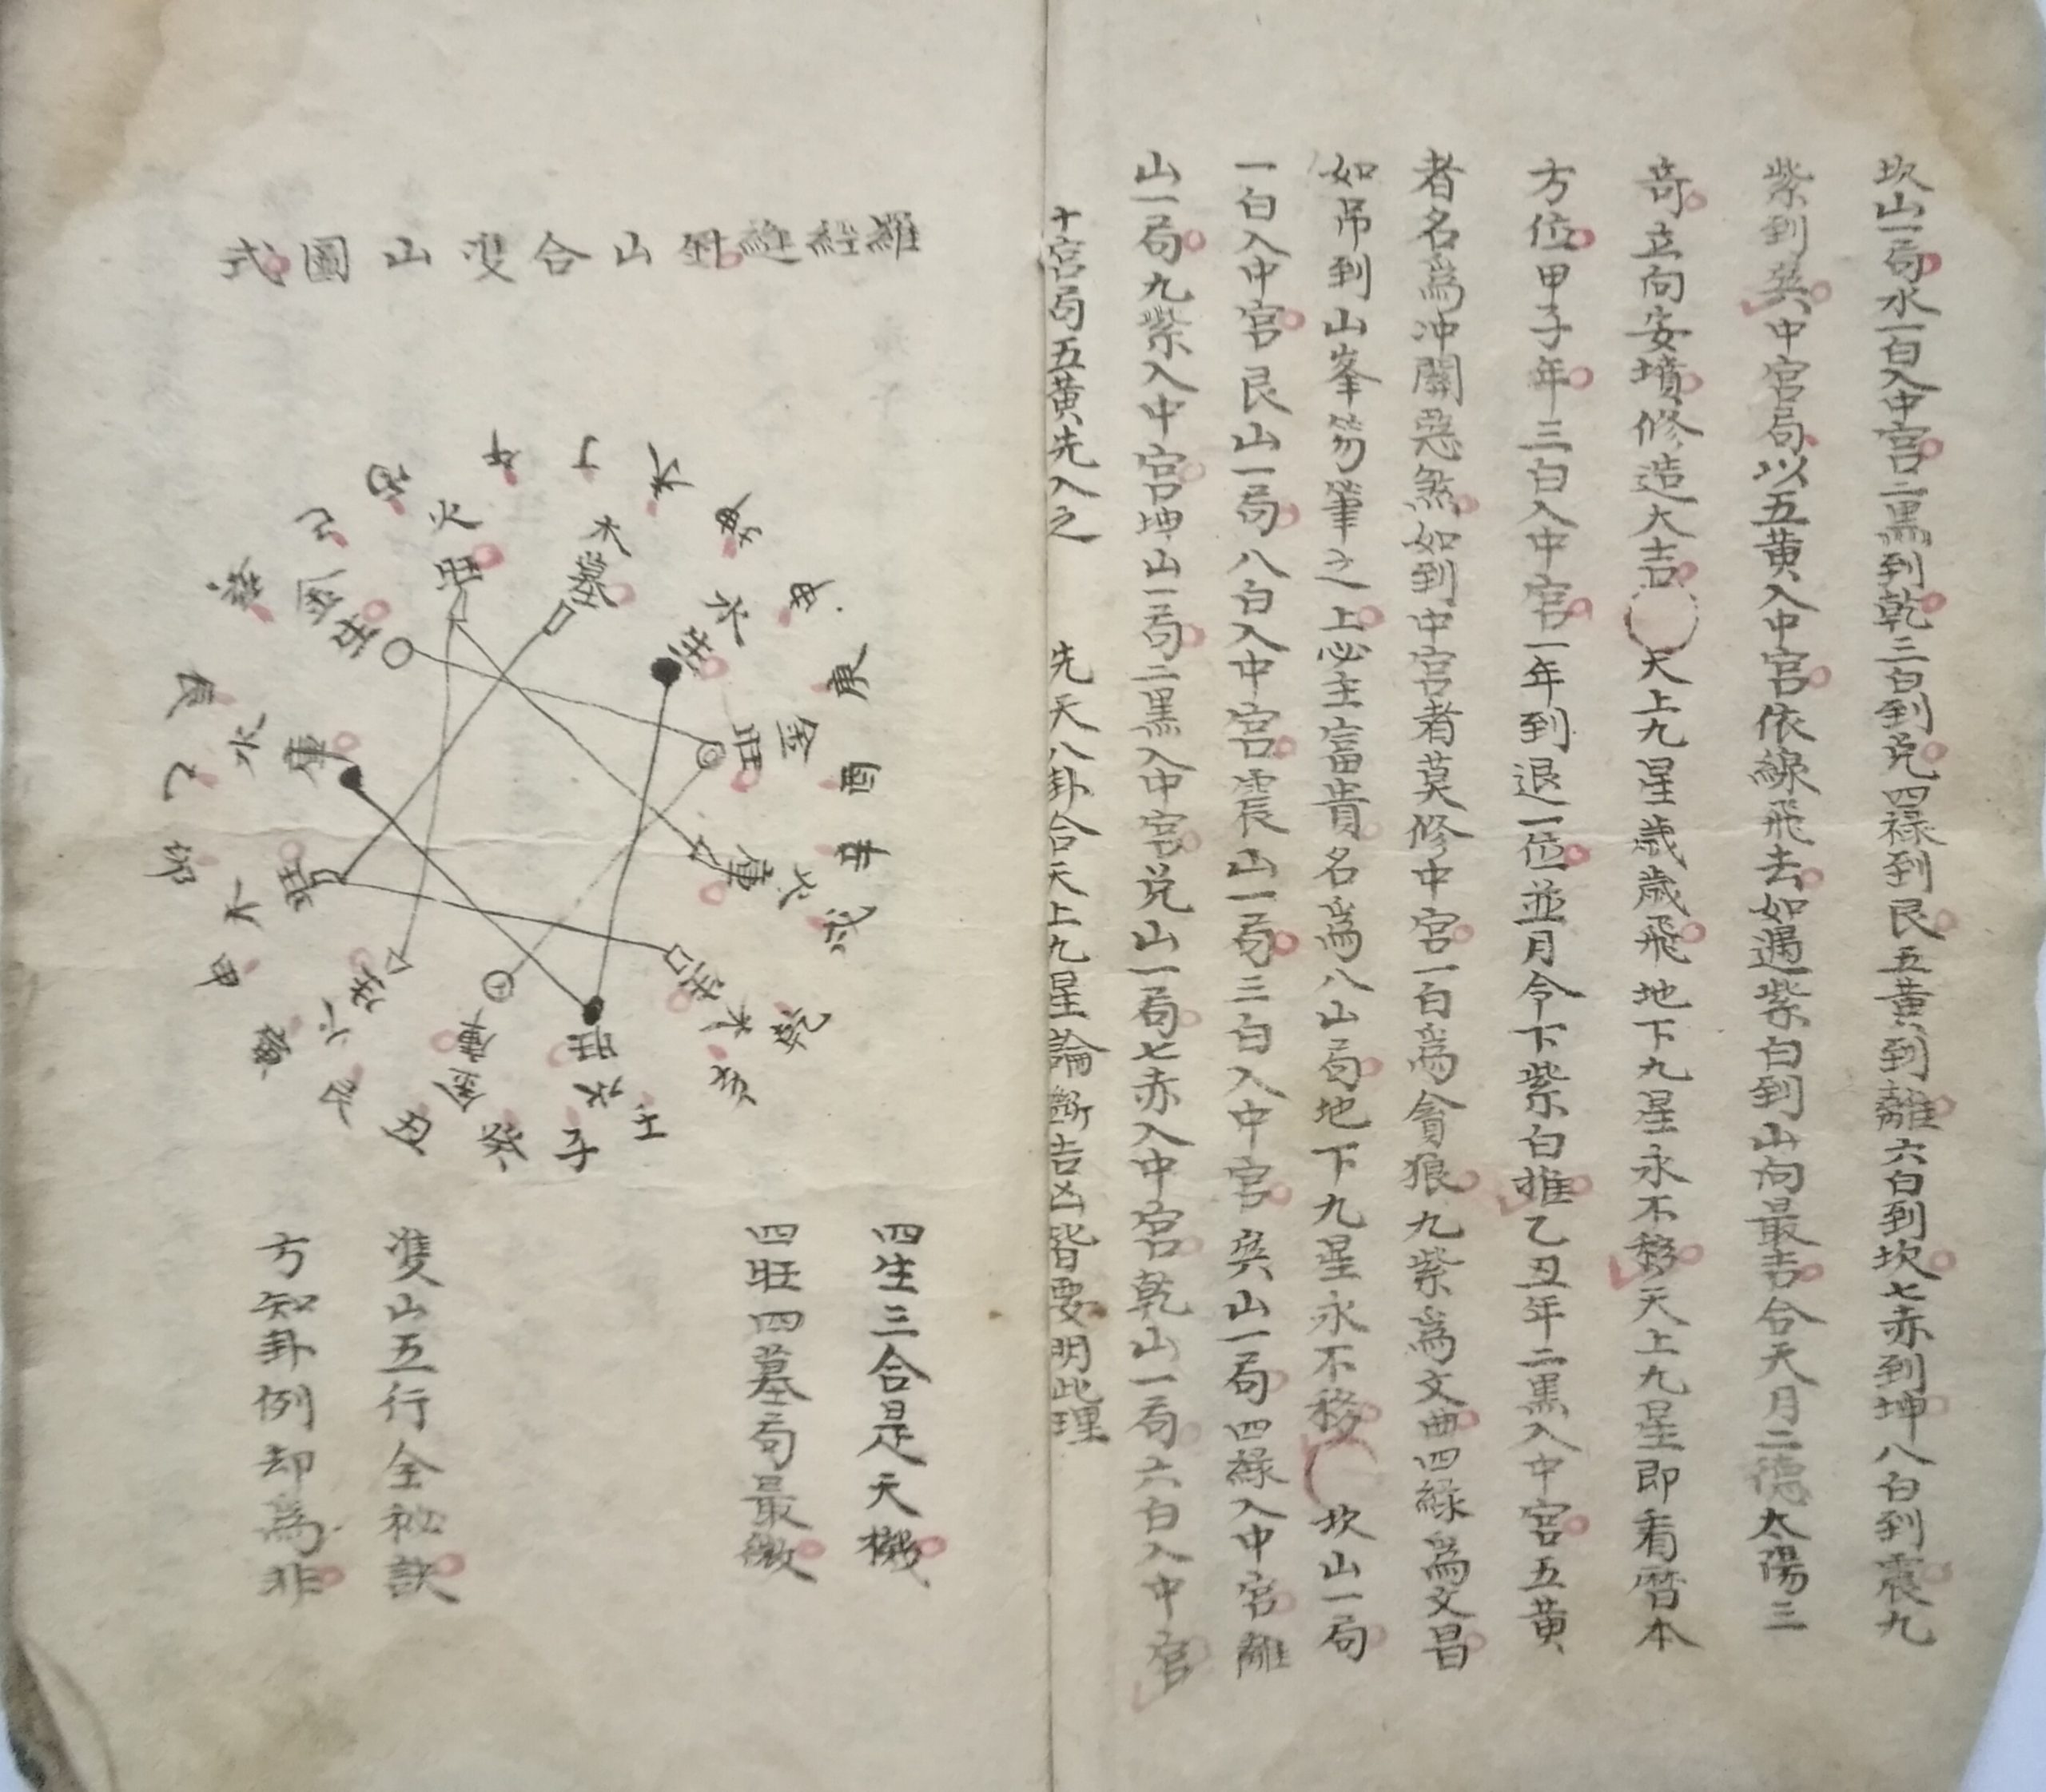 坎山一局水一白入中宮二黑到乾三白到兑四祿到艮五黃到離六白到坎七赤到坤八白到震九
紫到巽中宮局以五黃入中宮依綠飛去如遇紫白到山向最吉合天月二德太陽三
奇立向安墳修造大吉天上九星歲歲飛地下九星永不移天上九星即看曆本
方位甲子年三白入中宮一年到退一位並月令下紫白推乙丑年二黑入中宮五黃
者名為冲關惡煞如到中宮者莫修中宮一白為貪狼九紫為文曲四綠為文昌
如吊到山峯笏筆之上必主富貴名為八山局地下九星永不移坎山一局
一白入中宮艮山一局八白入中宮震山一局三白入中宮巽山一局四綠入中宮離
山一局九紫入中宮坤山一局二黑入中宮兑山一局七赤入中宮乾山一局六白入中宮
十宮局五黃先入之 先天八卦合天上九星論斷吉凶皆要明此理
羅經縫針山合双山圖式
丙 午 丁 未 坤 申 庚 酉 辛 戌 乾 亥 壬 子 癸 丑 艮 寅 甲 卯 乙 辰 巽 巳
火 木 水 金 火 木 水 金 火 木 水 金
旺 墓 生 旺 庫 生 旺 庫 生 旺 庫 生
四生三合是天機
四旺四墓局最微
雙山五行全秘訣
方知卦例却為非